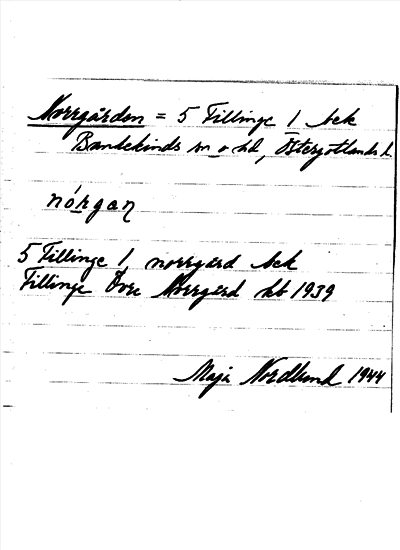 Norrgården = 5 Tillinge 1 bek
Bankekinds sn o hd, Östergötlands l.
nórgan
5 Tillinge 1, norrgård bek
Tillinge Norrgård kb 1939
Maja Nordlund 1944